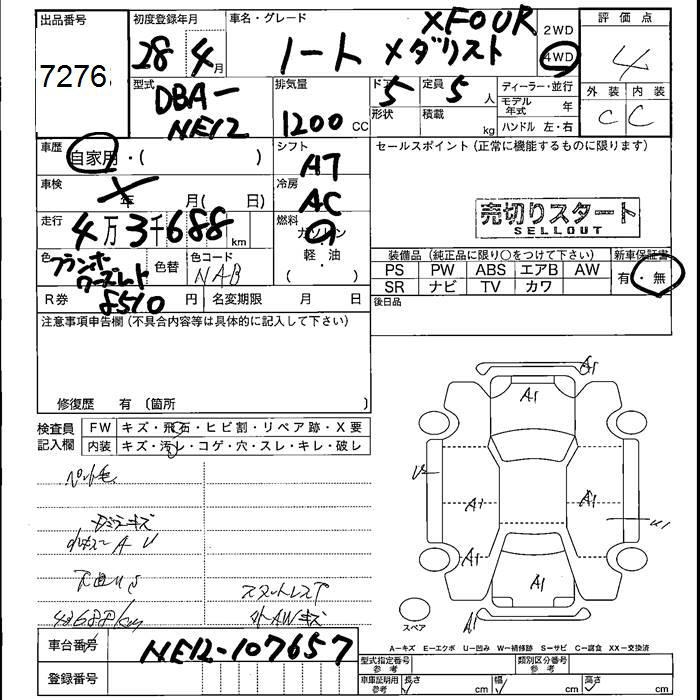 出品番号
7276
初度登録年月
28 4月
車名・グレード
ノート メダリスト XFOUR
2WD
4WD
評価点
4
外装 内装
C C
型式
DBA-
NE12
排気量
1200 CC
ドア
5
定員
5 人
形状
積載
kg
ディーラー・並行
モデル年式 年
ハンドル 左・右
車歴
自家用・( )
シフト
AT
車検
年 月( 日)
冷房
AC
走行
4万3千688km
燃料
ガソリン
軽・油
( )
色
色替
色コード
NAB
R券
8510円
名変期限 月 日
セールスポイント(正常に機能するものに限ります)
売切りスタート
SELLOUT
装備品(純正品に限り○をつけて下さい)
新車保証書
PS PW ABS エアB AW
SR ナビ TV カワ
有・無
後日品
注意事項申告欄(不具合内容等は具体的に記入して下さい)
修復歴 有 〔箇所 〕
検査員
記入欄
FW キズ・飛石・ヒビ割・リペア跡・X要
内装 キズ・汚レ・コゲ・穴・スレ・キレ・破レ
ペット毛
43688km
A1
A1
A1
A1
A1
A1
A1
U1
スペア
A-キズ E-エクボ U-凹み W-補修跡 S-サビ C-腐食 XX-交換済
車台番号
NE12-107657
登録番号
型式指定番号
参考
類別区分番号
参考
車庫証明用
参考
長さ cm
幅 cm
高さ cm